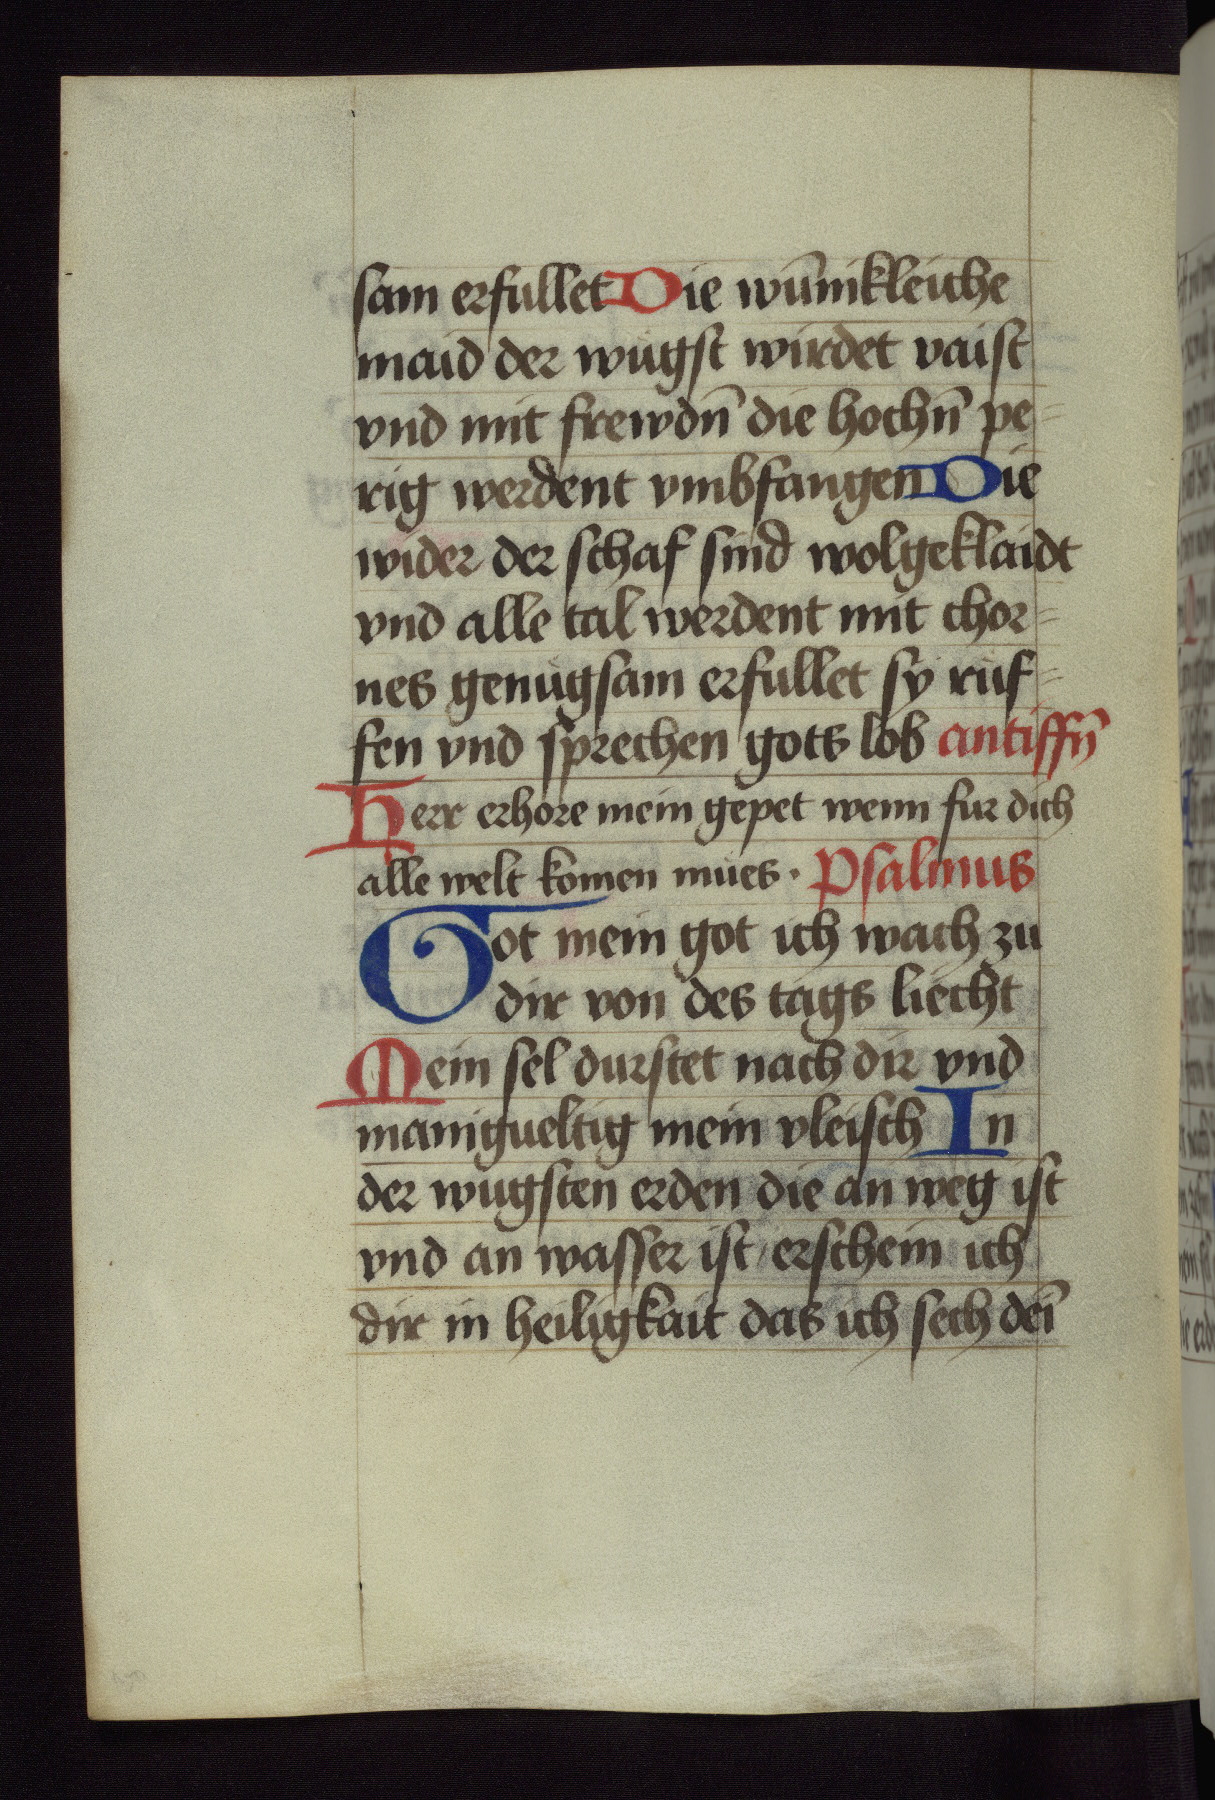 sam erfullet Die wūnikleiche
maid der wůgst wirdet vaist
vnd mit frewdn̄ die hochn̄ pe=
rig werdent vmbfangen Die
wider der schaf sind wolgeklaidt
vnd alle tal werdent mit chor=
nes genůgsam erfullet sy rüf=
fen vnd sprechen gots lob antiffn̄
Herr erhore mein gepet wenn fur dich
alle welt komen můes · Psalmus
Got mein got ich wach zu
dir von des tags liecht
Mein sel durstet nach dir vnd
manigueltig mein vleisch In
der wůgsten erden die an weg ist
vnd an wasser ist / erschein ich
dir in heiligkait das ich sech dei̅